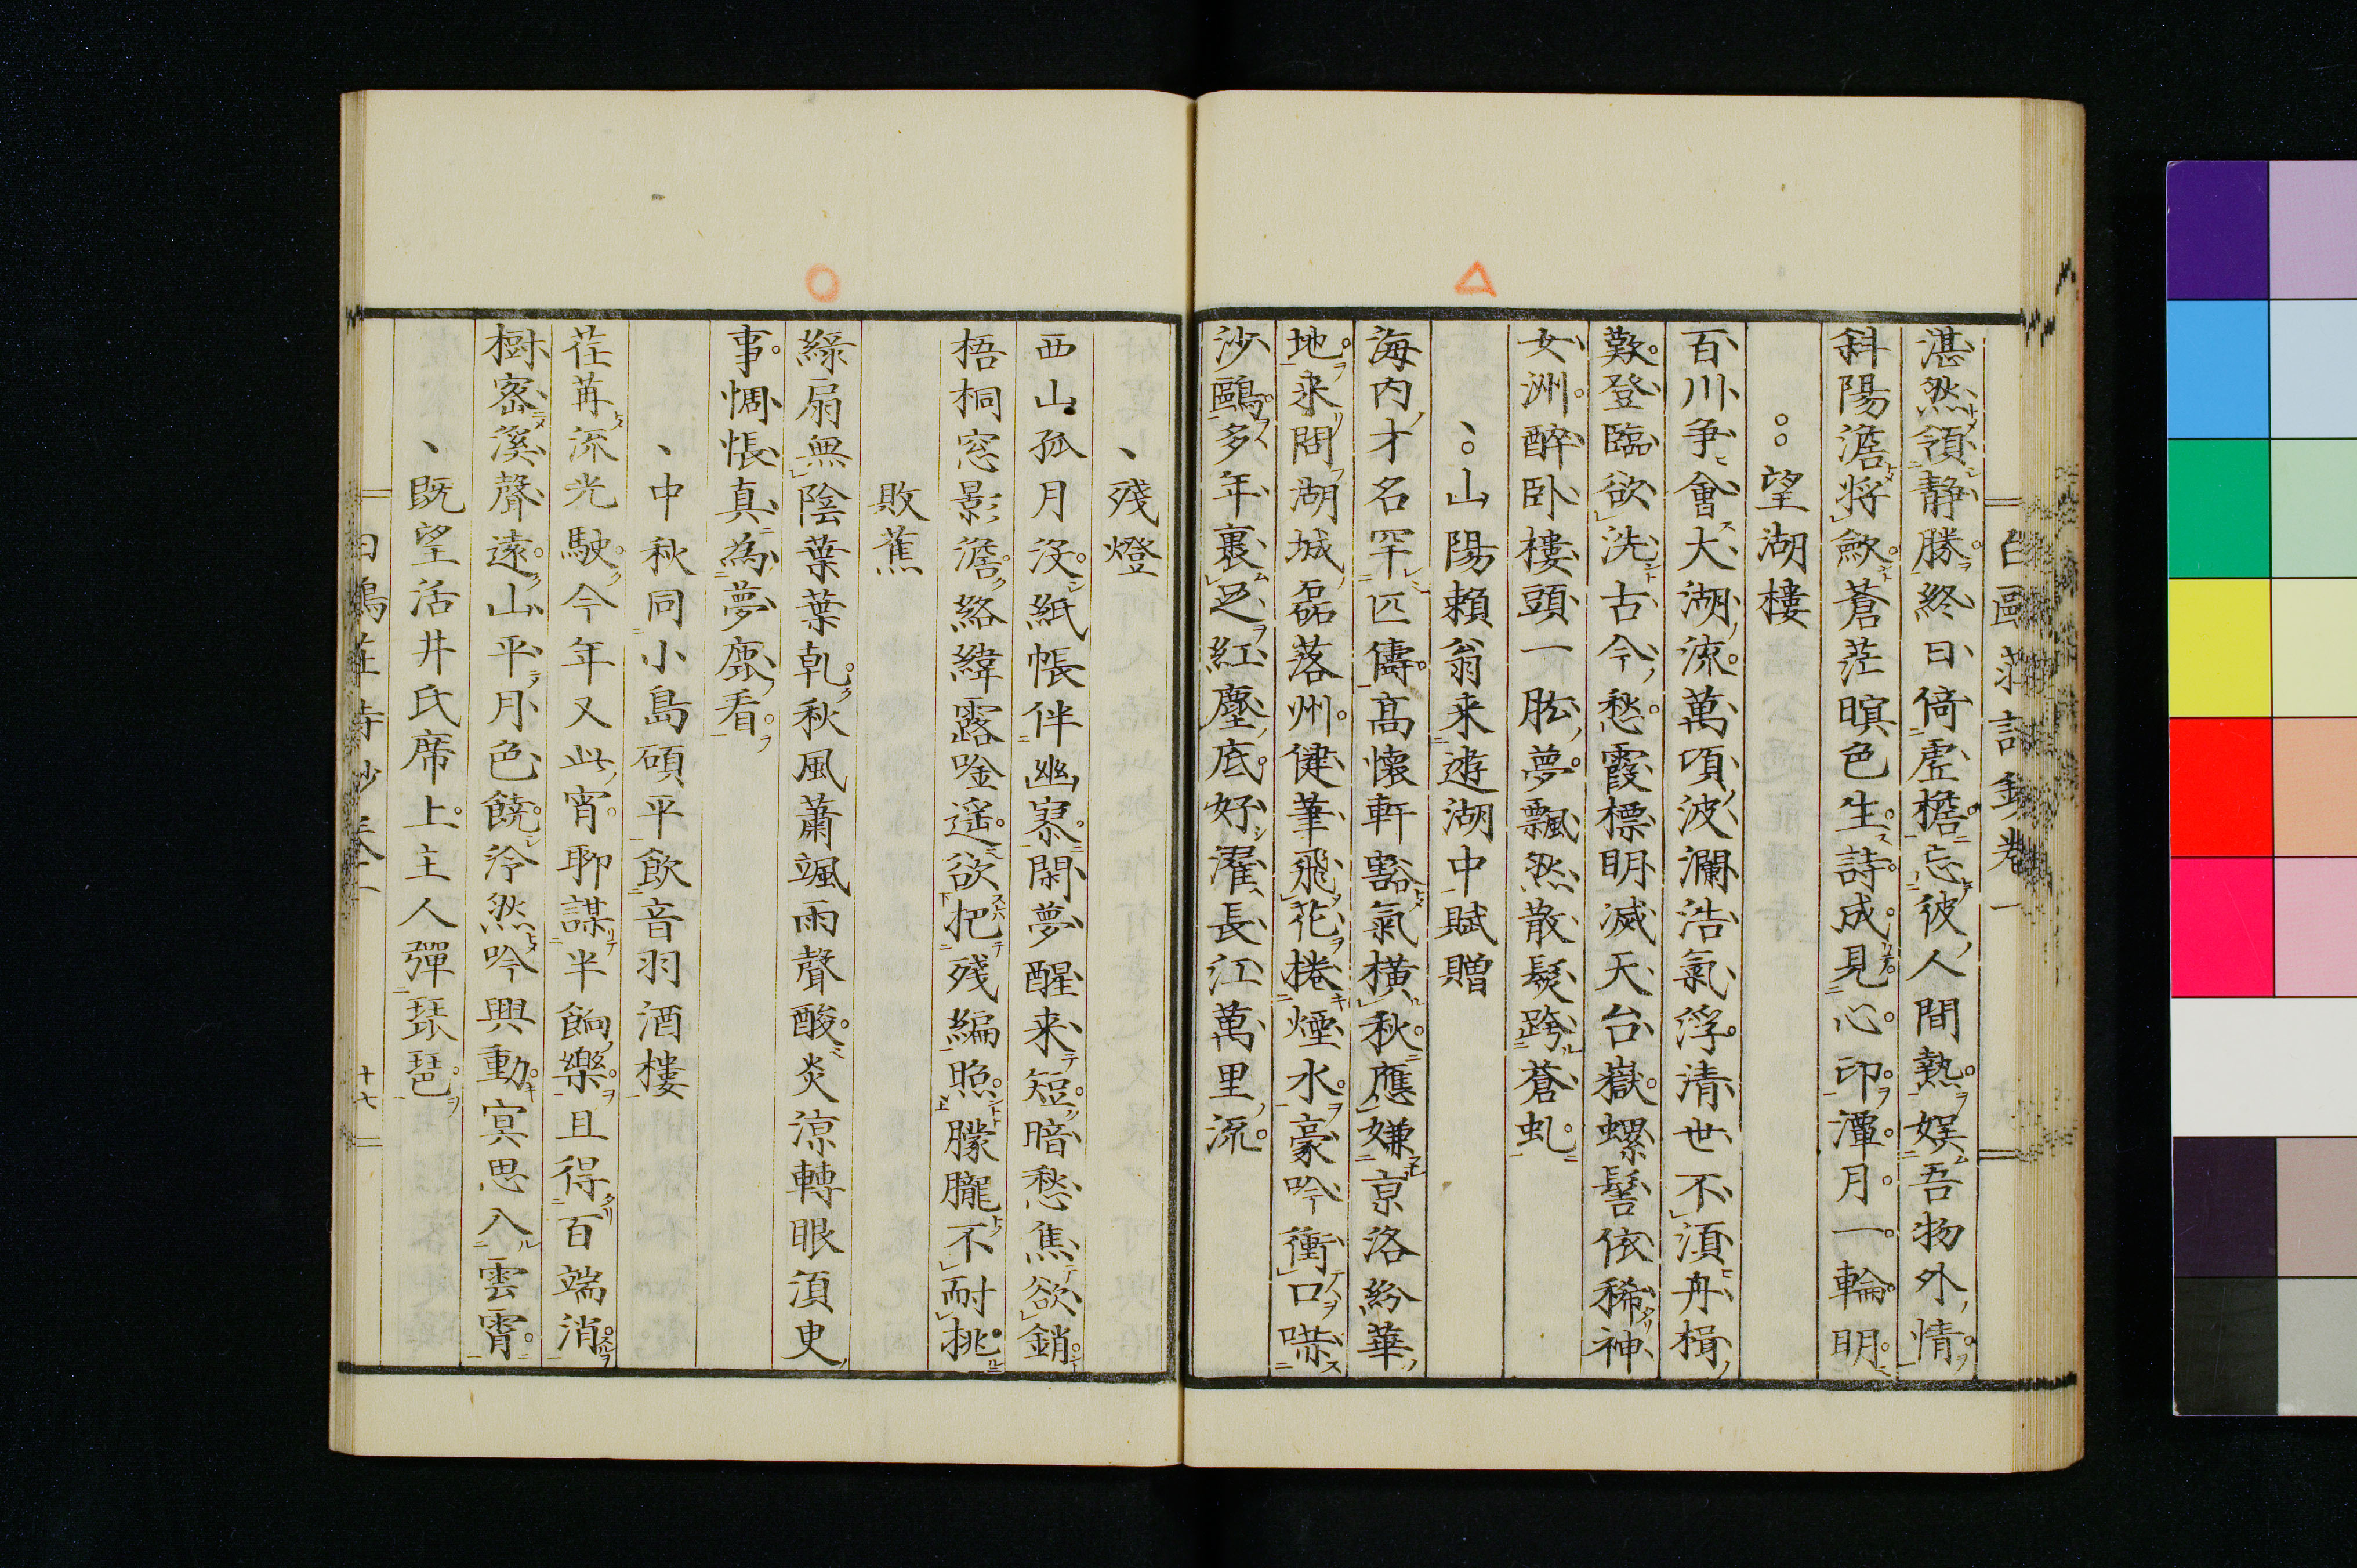 白鷗莊詩鈔卷一
湛然領静勝終日倚虛檐忘彼人間熱娯吾物外情
斜陽澹將斂蒼茫暝色生詩成見心印潭月一輪明
望湖樓
百川爭會大湖流萬頃波瀾浩氣浮清世不須舟楫
歎登臨欲洗古今愁霞標明滅天台嶽螺髻依稀神
女洲醉卧樓頭一肱夢飄然散髮跨蒼虬
山陽賴翁来遊湖中賦贈
海内才名罕匹儔高懷軒豁氣橫秋應嫌京洛紛華
地来問湖城磊落州健筆飛花捲煙水豪吟衝口㗢
沙鷗多年裏足紅塵底好濯長江萬里流
殘燈
西山孤月没紙帳伴幽寥閑夢醒来短暗愁焦欲銷
梧桐窓影澹絡緯露唫遥欲把殘編照朦朧不耐挑
敗蕉
綠扇無陰葉葉乾秋風蕭颯雨聲酸炎涼轉眼須臾
事惆悵真為夢鹿看
中秋同小島碩平飲音羽酒樓
荏苒流光駛今年又此宵聊謀半餉樂且得百端消
樹密溪聲遠山平月色饒泠然吟興動冥思入雲霄
既望活井氏席上主人彈琵琶
白鷗莊詩鈔卷一
十七